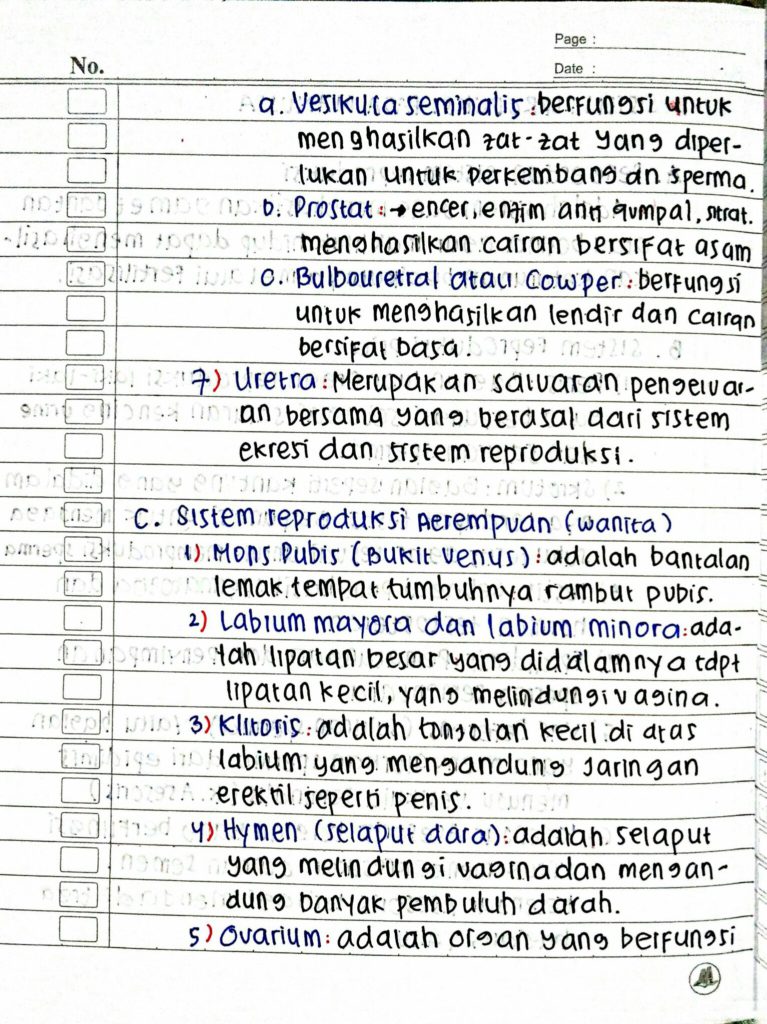 Page :
No.
Date :
a. Vesikula seminalis : berfungsi untuk
menghasilkan zat-zat yang diper-
lukan untuk perkembangan sperma.
b. Prostat : → encer, enzim anti gumpal, sitrat.
menghasilkan cairan bersifat asam
c. Bulbouretral atau Cowper : berfungsi
untuk menghasilkan lendir dan cairan
bersifat basa.
7) Uretra : Merupakan saluran pengeluar-
an bersama yang berasal dari sistem
ekresi dan sistem reproduksi.
C. Sistem reproduksi Perempuan (wanita)
1) Mons Pubis (Bukit Venus) : adalah bantalan
lemak tempat tumbuhnya rambut pubis.
2) Labium mayora dan labium minora : ada-
lah lipatan besar yang didalamnya tdpt
lipatan kecil, yang melindungi vagina.
3) Klitoris : adalah tonjolan kecil di atas
labium, yang mengandung Jaringan
erektil seperti penis.
4) Hymen (selaput dara) : adalah selaput
yang melindungi vagina dan mengan-
dung banyak pembuluh darah.
5) Ovarium : adalah organ yang berfungsi